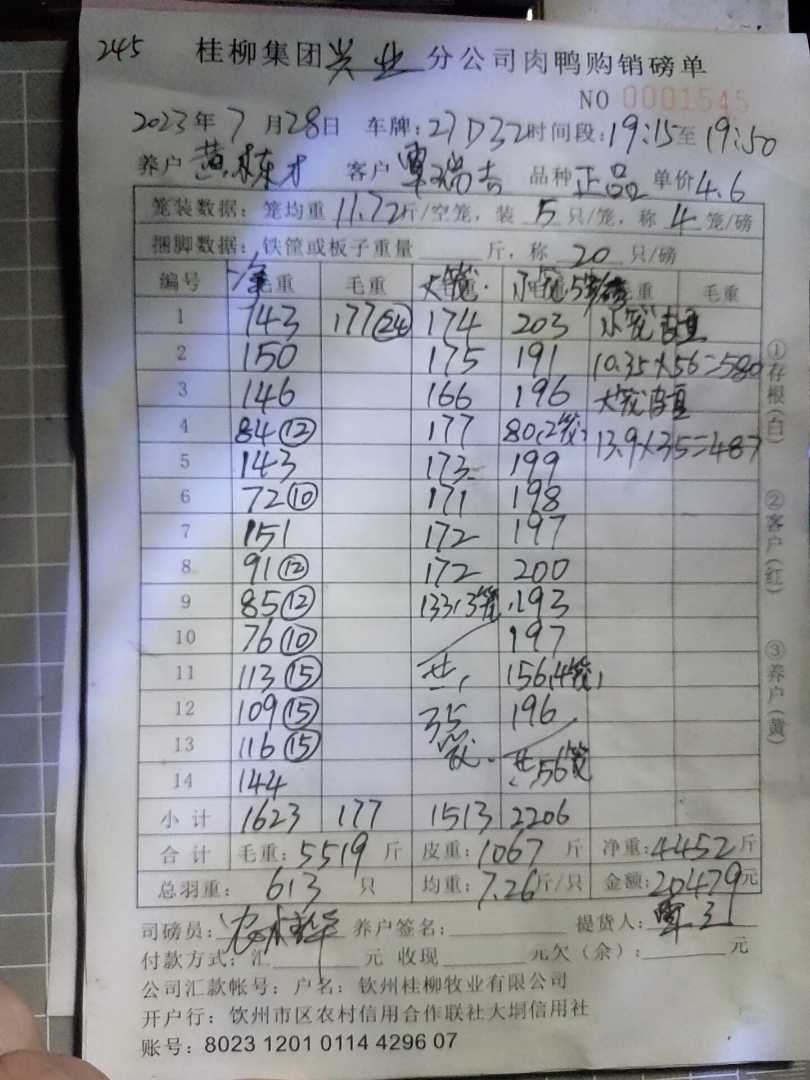 245 桂柳集团兴业分公司肉鸭购销磅单
NO 0001545
2023年7月28日 车牌:27D32时间段:19:15至19:50
养户黄栋才 客户覃瑞吉 品种正品单价4.6
笼装数据:笼均重11.72斤/空笼,装5只/笼,称4笼/磅
捆脚数据:铁筐或板子重量 斤,称20只/磅
编号 毛重 毛重 大笼. 小笼.5 毛重 毛重
1 143 177(24) 174 203 小笼皮重
2 150 175 191 10.35×56=580
3 146 166 196 大笼皮重
4 84(12) 177 80(2笼) 13.9×35=487
5 143 173 199
6 72(10) 171 198
7 151 172 197
8 91(12) 172 200
9 85(12) 133(3笼) 193
10 76(10) 197
11 113(15) 共 156(4笼)
12 109(15) 35 196
13 116(15) 笼. 共56笼
14 144
小计 1623 177 1513 2206
合计 毛重:5519斤 皮重:1067斤 净重:4452斤
总羽重: 613 只 均重:7.26斤/只 金额:20479元
司磅员: 养户签名: 提货人:覃
付款方式:汇 元 收现 元欠(余): 元
公司汇款帐号:户名:钦州桂柳牧业有限公司
开户行:钦州市区农村信用合作联社大垌信用社
账号:8023 1201 0114 4296 07
①存根(白)
②客户(红)
③养户(黄)